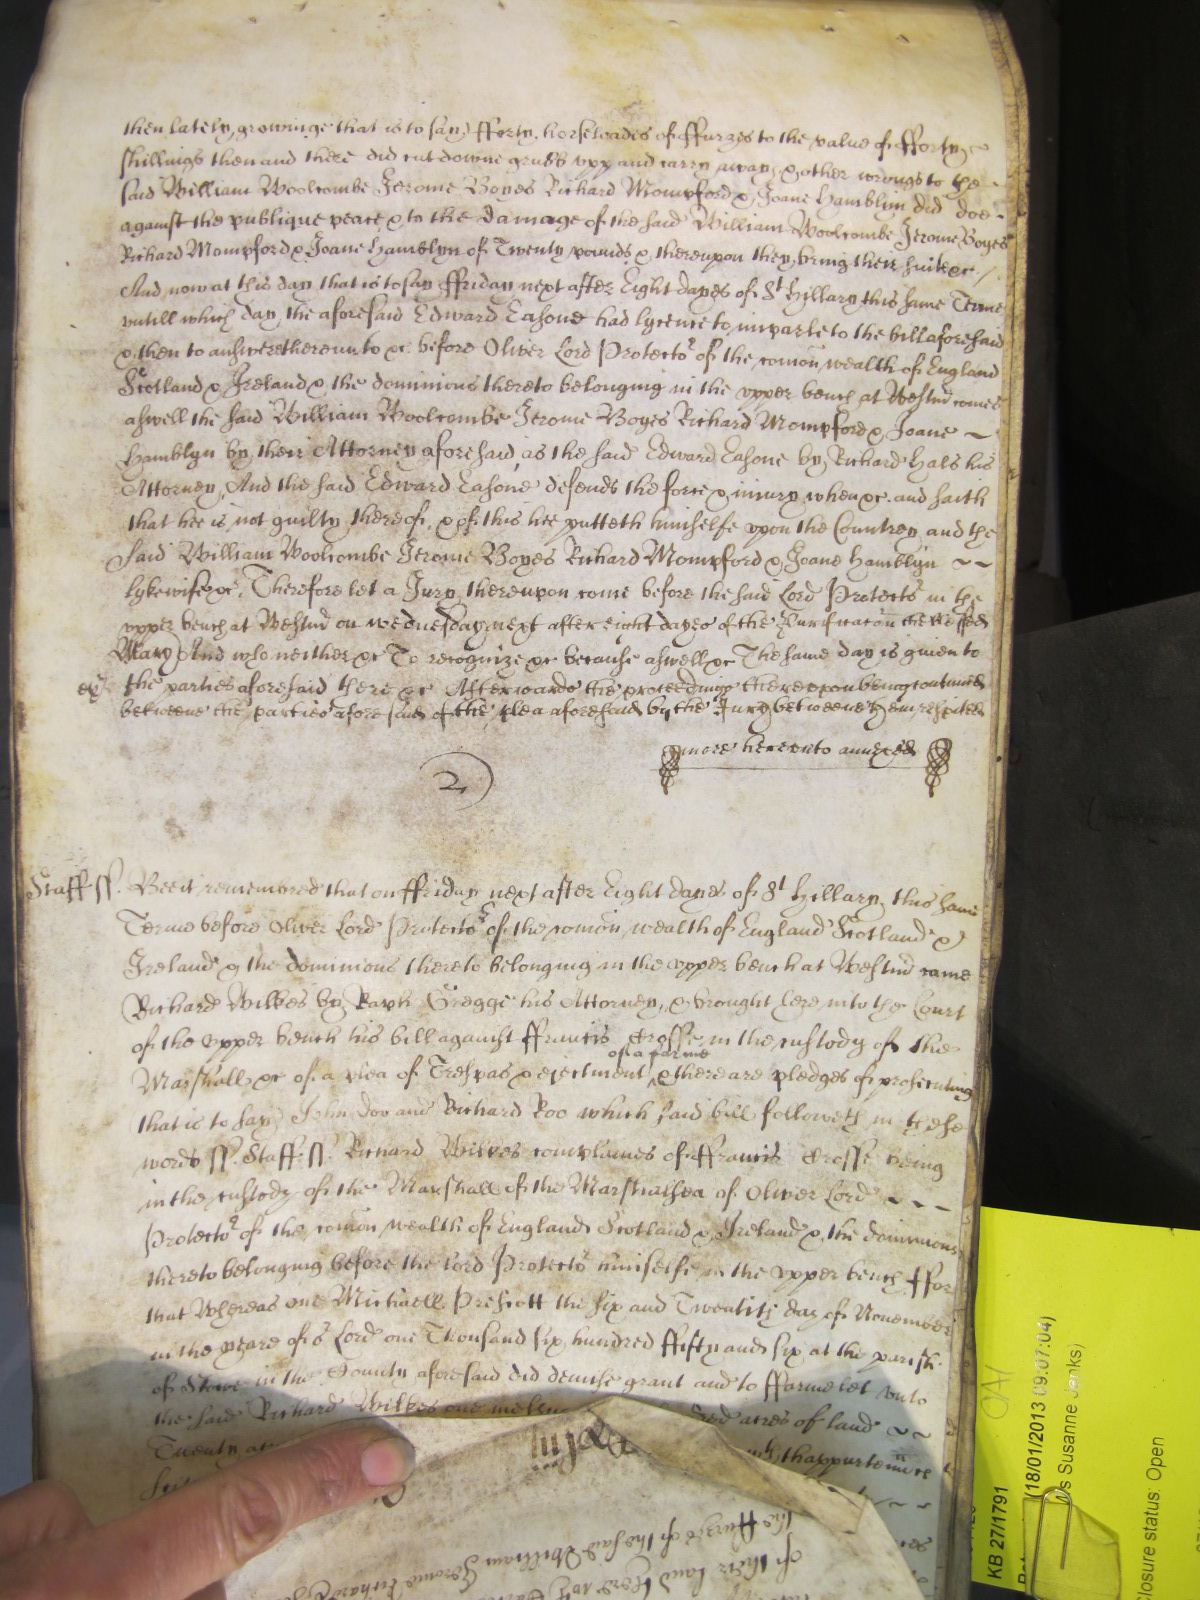 then lately growinge that is to say fforty horseloades of ffurzes to the value of fforty
shillings then and there did cut downe grubb upp and carry away & other wrongs to the
said William Woolcombe Jerome Boyes Richard Mompford & Joane Hamblyn did doe
against the publique peace & to the damage of the said William Woolcombe Jerome Boyes
Richard Mompford & Joane Hamblyn of Twenty pounds & thereupon they bring their suite &c
And now at this day that is to say ffriday next after Eight dayes of St Hillary this same Terme
untill which day the aforesaid Edward Eason had lycence to imparle to the bill aforesaid
& then to answere thereunto &c before Oliver Lord Protector of the comon wealth of England
Scotland & Ireland & the dominions thereto belonging in the upper bench at Westmr comes
aswell the said William Woolcombe Jerome Boyes Richard Mompford & Joane
Hamblyn by their Attorney aforesaid as the said Edward Easone by Richard Hals his
Attorney And the said Edward Easone defends the force & injury when &c and saith
that hee is not guilty thereof & of this hee putteth himselfe upon the Countrey and the
said William Woolcombe Jerome Boyes Richard Mompford & Joane Hamblyn
lykewise &c Therefore let a Jury thereupon come before the said Lord Protector in the
upper bench at Westmr on wednesday next after eight dayes of the Purificacon the blessed
Mary And who neither &c To recognize &c because aswell &c The same day is given to
the parties aforesaid there &c Afterwards the proceedings thereupon being continued
betweene the parties aforesaid of the plea aforesaid by the Jury betweene them respited
more hereunto annexed
2
Staff ss. Bee it remembred that on ffriday next after Eight dayes of St Hillary this same
Terme before Oliver Lord Protector of the comon wealth of England Scotland &
Ireland & the dominions thereto belonging in the upper bench at Westmr came
Richard Wilkes by Raph Gregge his Attorney & brought here into the Court
of the upper bench his bill against ffrancis Crosse in the custody of the
of a farme
Marshall &c of a plea of Trespas & ejectment & there are pledges of prosecuting
that is to say John Doo and Richard Roo which said bill followeth in these
words ss. Staff ss. Richard Wilkes complaines of ffrancis Crosse being
in the custody of the Marshall of the Marshalsea of Oliver Lord
Protector of the comon wealth of England Scotland & Ireland & the dominions
thereto belonging before the Lord Protector himselfe in the upper bench ffor
that Whereas one Michaell Prescott the six and Twentith day of November
in the yeare of or Lord one Thousand six hundred ffifty and six at the parish
of Stowe in the County aforesaid did demise grant and to ffarme let unto
the said Richard Wilkes one acres of land
Twenty thappurtennces
of their land
the ffurzes of the said William Jerome Richard
KB 27/1791
(18/01/2013 09:07:04)
Susanne Jenks)
Closure status: Open